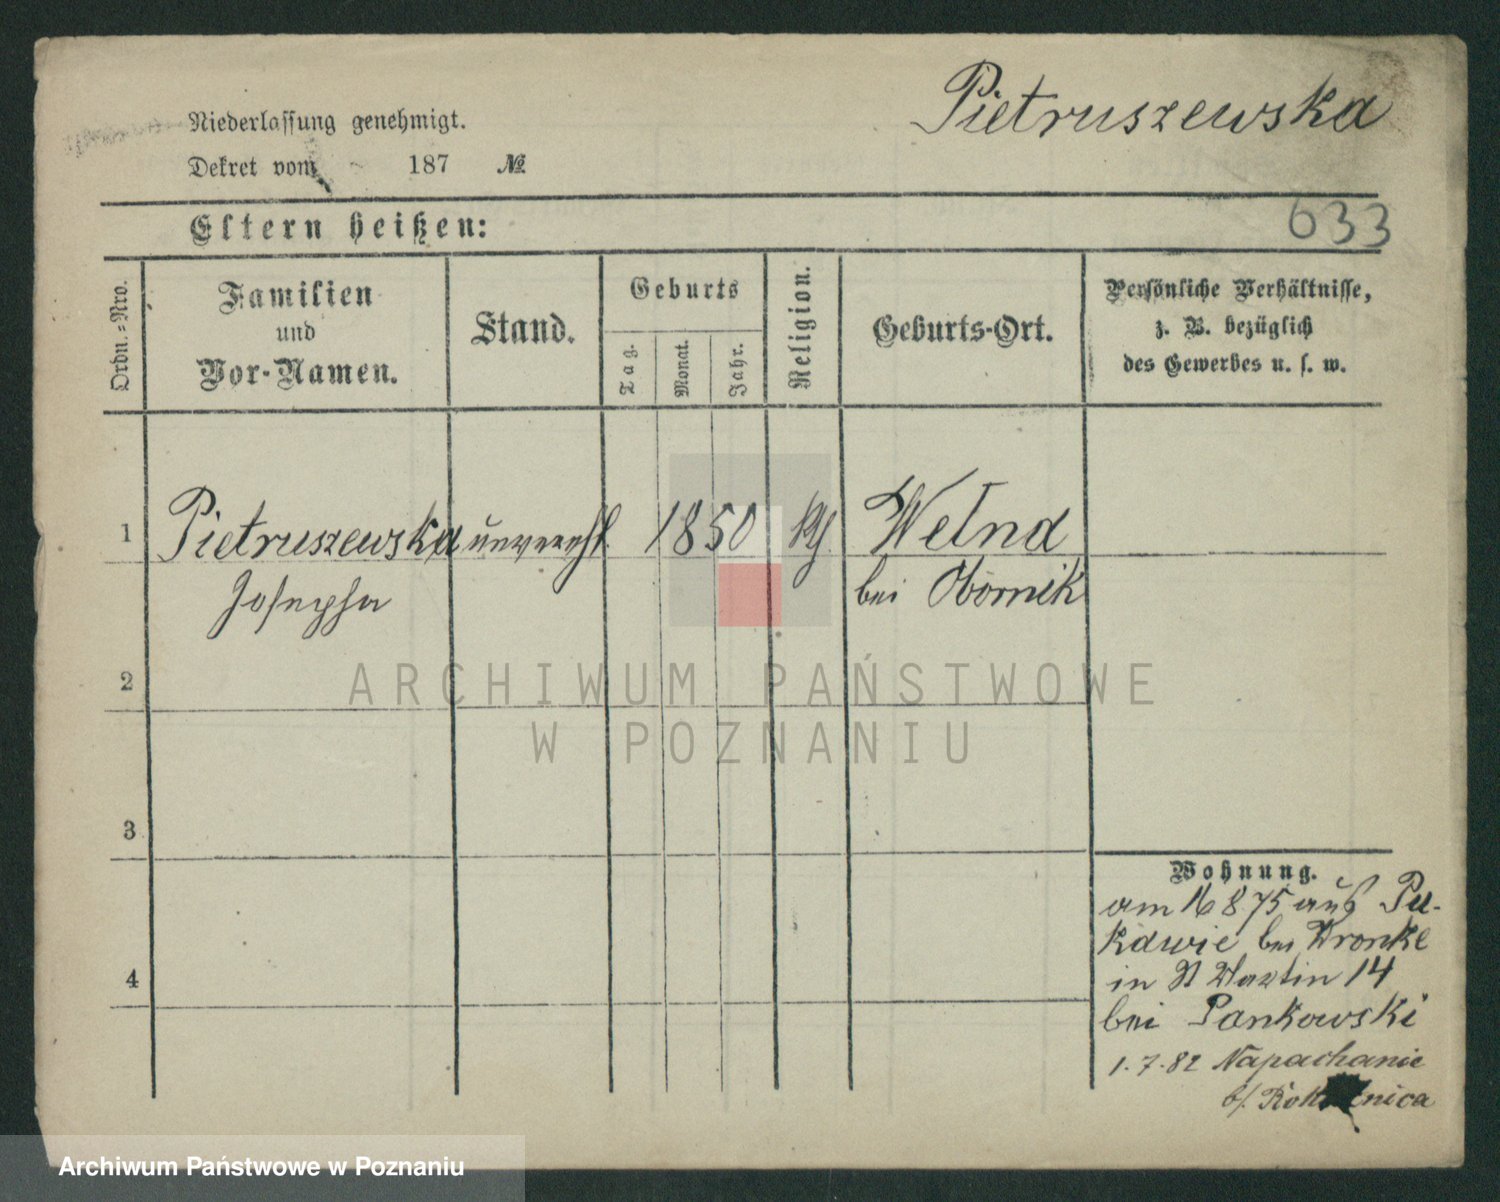 Pietruszewska
Niederlassung genehmigt.
Dekret vom 187 №
633
Eltern heißen:
Ordn.-Nro.
Familien
und
Vor-Namen.
Stand.
Geburts
Tag.
Monat.
Jahr.
Religion.
Geburts-Ort.
Persönliche Verhältnisse,
z. B. bezüglich
des Gewerbes u. s. w.
1 Pietruszewska unvereht 1850 kth Wełna
Josepha bei Obornik
2
ARCHIWUM PAŃSTWOWE
W POZNANIU
3
Wohnung.
am 16 8 75 aus Pa-
kawie bei Wronke
4
in St Martin 14
bei Pankowski
1.7.82 Napachanie
b/. Rokitnica
Archiwum Państwowe w Poznaniu